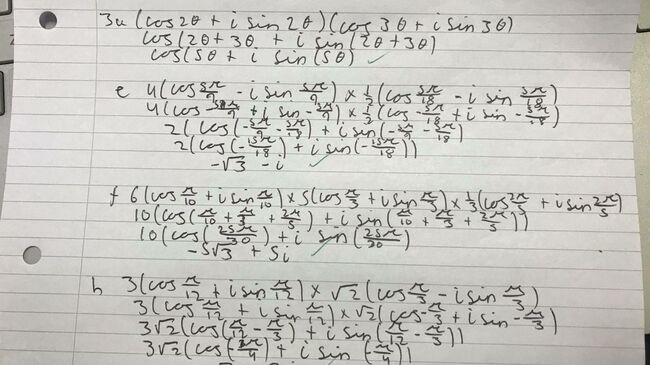 3a (cos2θ + i sin2θ)(cos3θ + i sin3θ)
cos(2θ+3θ + i sin(2θ+3θ)
cos(5θ + i sin(5θ) ✓
e 4(cos 5π/9 - i sin 5π/9) × 1/2(cos 5π/18 - i sin 5π/18)
4(cos -5π/9 + i sin -5π/9) × 1/2(cos -5π/18 + i sin -5π/18)
2(cos(-5π/9 - 5π/18) + i sin(-5π/9 - 5π/18)
2(cos(-15π/18) + i sin(-15π/18))
-√3 - i ✓
f 6(cos π/10 + i sin π/10) × 5(cos π/3 + i sin π/3) × 1/3(cos 2π/5 + i sin 2π/5)
10(cos(π/10 + π/3 + 2π/5) + i sin(π/10 + π/3 + 2π/5))
10(cos(25π/30) + i sin(25π/30)
-5√3 + 5i ✓
h 3(cos π/12 + i sin π/12) × √2(cos π/3 - i sin π/3)
3(cos π/12 + i sin π/12) × √2(cos -π/3 + i sin -π/3)
3√2(cos(π/12 - π/3) + i sin(π/12 - π/3))
3√2(cos(-π/4) + i sin(-π/4))